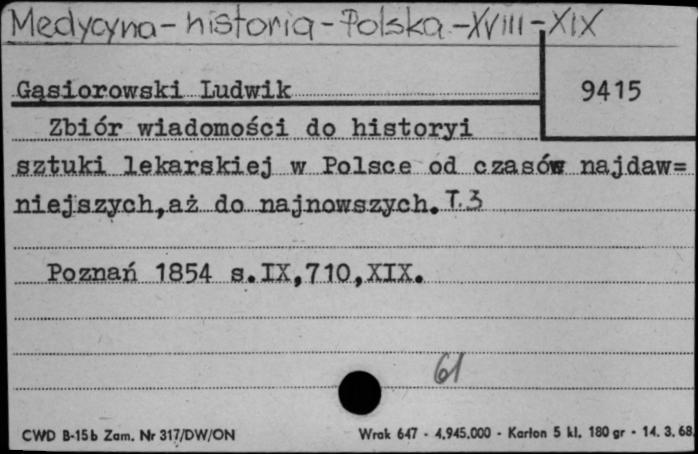 Medycyna - historia - Polska - XVIII - XIX
Gąsiorowski Ludwik
9415
Zbiór wiadomości do historyi
sztuki lekarskiej w Polsce od czasów najdaw=
niejszych, aż do najnowszych. T.3
Poznań 1854 s.IX,710,XIX.
61
CWD B-15b Zam. Nr 317/DW/ON
Wrak 647 - 4.945.000 - Karton 5 kl. 180 gr - 14. 3. 68